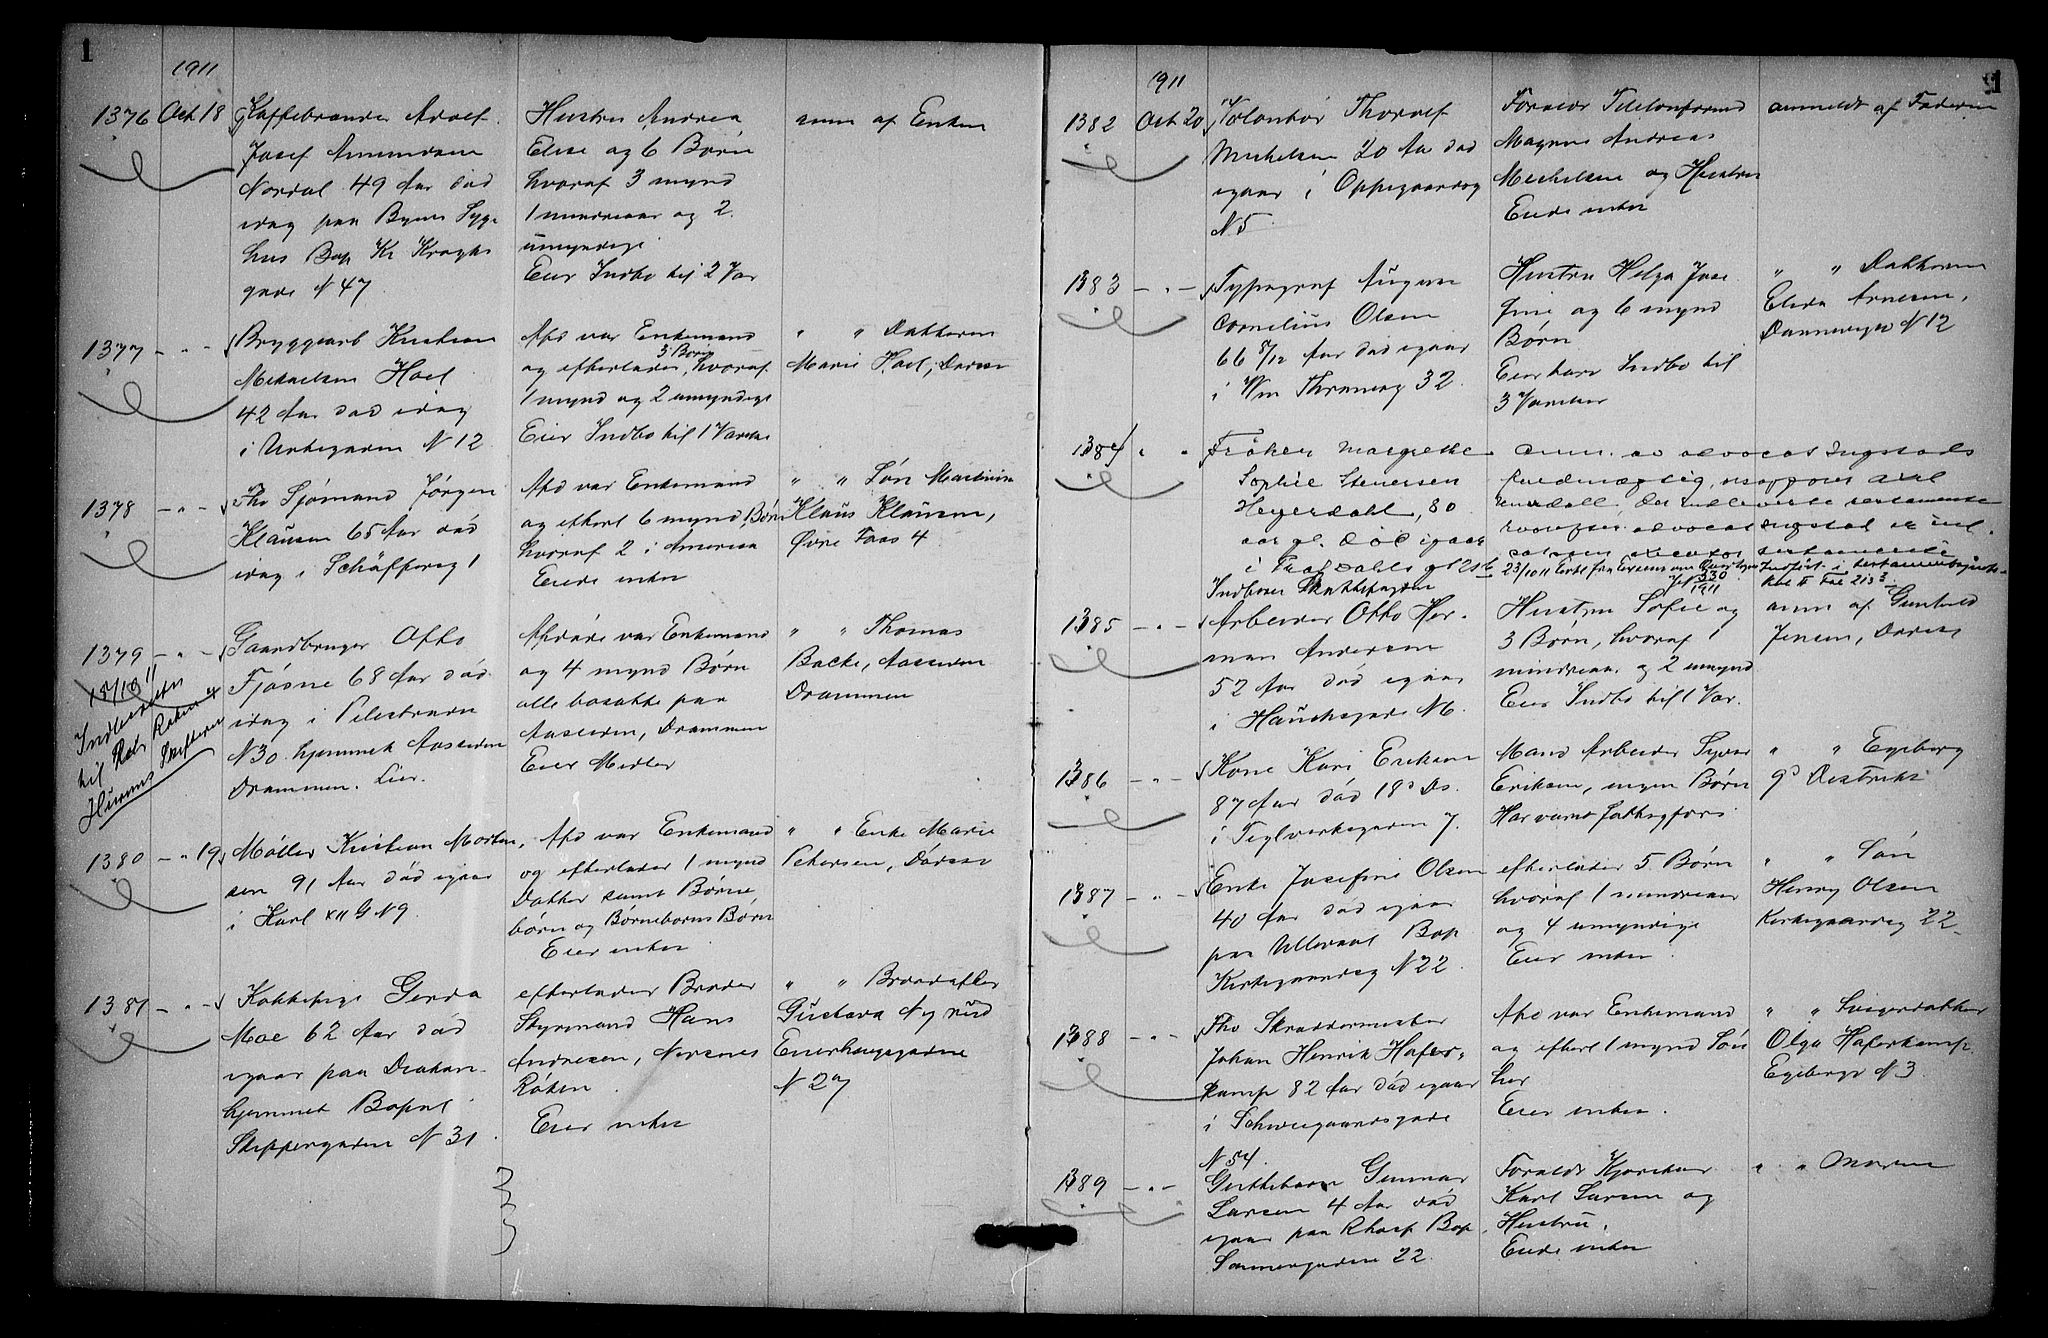 1
1911
1376 Oct 18 Kaffebrænder Adolf
Josef Amundsen
Nordal 49 Aar død
idag paa Byens Syge
hus Bop Kr Kroghs
gade N 47
Hustru Andrea
Elise og 6 Børn
hvoraf 3 mynd
1 mindreaar og 2
umyndige
Eier Indbo til 2 Vær
anm af Enken
1377 — " — Bryggearb Kristian
Mikaelsen Hoel
42 Aar død idag
i Urtegaden N 12
Afd var Enkemand
3 Børn
og efterlader, hvoraf
1 mynd og 2 umyndige
Eier Indbo til 1 Værelse
" " Datteren
Marie Hoel, Derses
1378 — " — Fhv Sjømand Jørgen
Klausen 65 Aar død
idag i Schäffersg 1
Afd var Enkemand
og efterl 6 mynd Børn
hvoraf 2 i Amerika
Eiede intet
" " Søn
Klaus Klausen,
Øvre Foss 4
1379 — " — Gaardbruger Otto
Fjøsne 68 Aar død
idag i Pilestræde
N 30. hjemmeh Aassiden
Drammen. Lier.
18/10 11
Indberettet
til
Skifteret
Afdøde var Enkemand
og 4 mynd Børn
alle bosatte paa
Aassiden, Drammen
Eier Midler
" " Thomas
Backe, Aassiden
Drammen
1380 — " 19 Møller Kristian Morten
sen 91 Aar død igaar
i Karl XII G N 9.
Afd var Enkemand
og efterlader 1 mynd
Datter samt Børne
børn og Børnebørns Børn
Eier intet
" " Enke Marie
Petersen, Dersес
1381 — " — Kokkepige Gerda
Moe 62 Aar død
igaar paa Diakon-
hjemmet Bopæl
Skippergaden N 31
efterlader Broder
Styrmand Hans
Andresen, Nærsnes
Røken
Eier intet
" " Brordatter
Gustava Nyrud
Enerhauggaden
N 27
1
1911
1382 Oct 20 Volontør Thoralf
Michelsen 20 Aar død
igaar i Oppegaardsg
N 5
Forældr Telefonformd
Magnus Andreas
Michelsen og Hustru
Eiede intet
anmeldt af Faderen
1383 — " — Typograf August
Cornelius Olsen
66 8/12 Aar død igaar
i Wm Thranesg 32
Hustru Helga Jose
fine og 6 mynd
Børn
Eier kare Indbo til
3 Værelser
" " Datteren
Elida Arnesen,
Dannevigsv N 12
1384 " " Frøken Margrethe
Sophie Stenersen
Heyerdahl, 80
aar gl. død igaar
Indboer
anm. av advocat Ingstads
advocat Ingstad er
23/10 11
N 330
1911
1385 — " — Arbeider Otto Her-
man Andersen
52 Aar død igaar
i Hauchsgade
Hustru Sofie og
3 Børn, hvoraf 1
mindreaar og 2 umynd
Eier Indbo til 1 Vær.
anm af Gunhild
Jensen, Dersес
1386 — " — Kone Kari Eriksen
87 Aar død 18d Ds.
i Teglverksgaden 7.
Mand Arbeider Syver
Eriksen, ingen Børn
Har været fattigfors
" " Egeberg
9d Distrikt
1387 — " — Enke Josefine Olsen
40 Aar død igaar
paa Ullevaal Bop
Kirkegaardsg N 22
efterlader 5 Børn
hvoraf 1 mindreaar
og 4 umyndige
Eier intet
" " Søn
Henry Olsen
Kirkegaardsg 22
1388 — " — Fhv Skræddermester
Johan Henrik Hafer-
kamp 82 Aar død igaar
i Schweigaardsgade
N 54.
Afd var Enkemand
og efterl 1 mynd Søn
her
Eier intet
" " Svigerdatter
Olga Haferkamp
Egebergs N 3
1389 — " — Guttebarn Gunnar
Larsen 4 Aar død
igaar paa Rhosp Bop
Sannergaden 22
Forældr Kjørekar
Karl Larsen og
Hustru.
Eiede intet
" " Moren